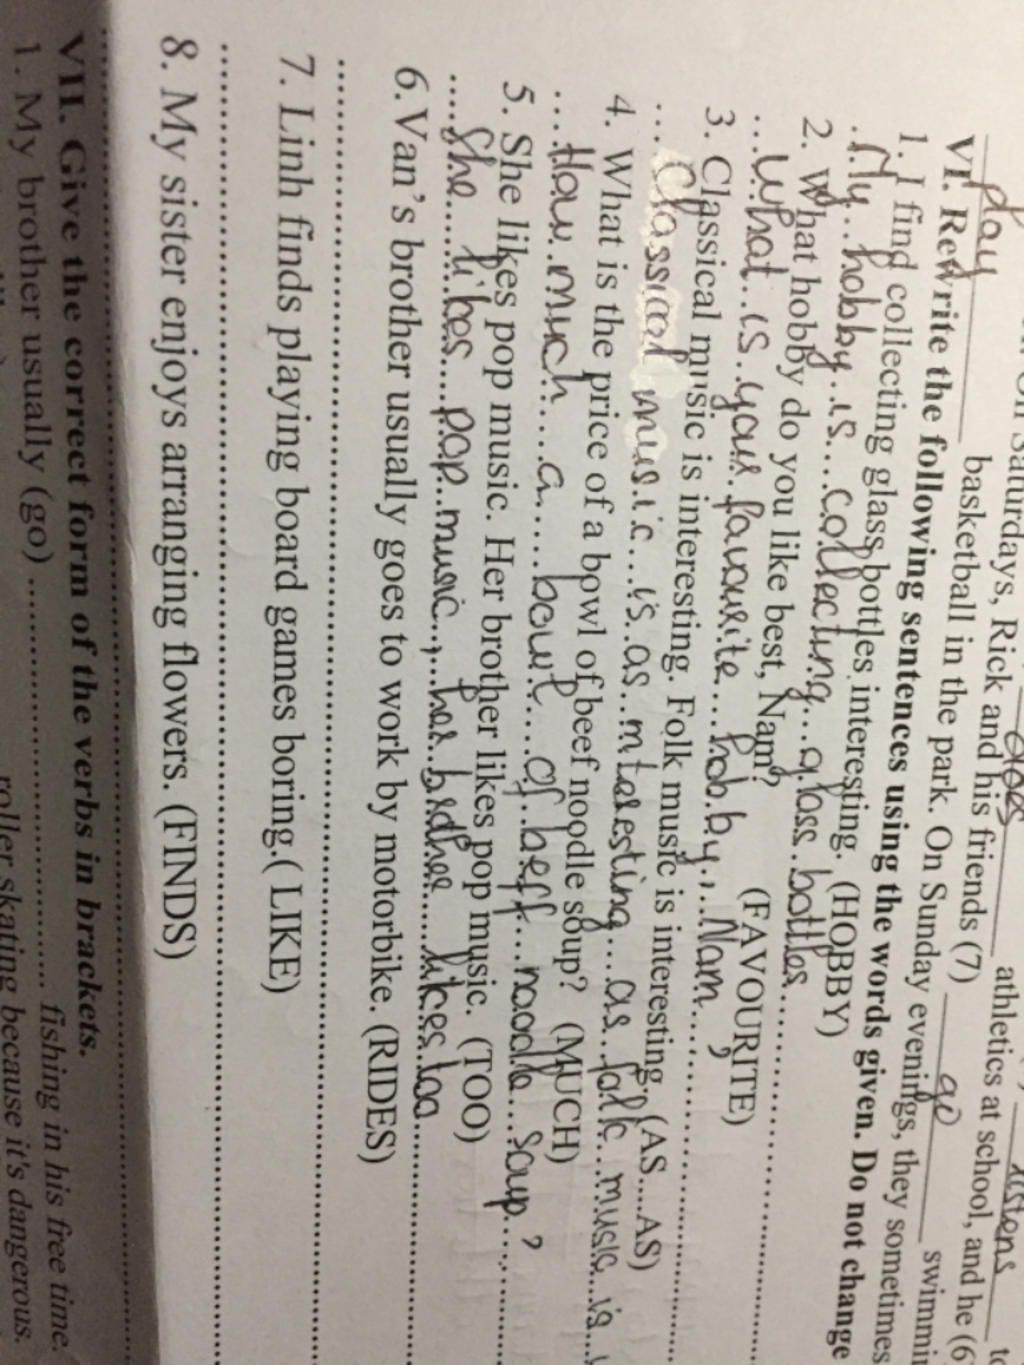 On Saturdays, Rick and his friends (7)
play basketball in the park. On Sunday evenings, they sometimes
does athletics at school, and he (6
go swimmin
listens to
VI. Rewrite the following sentences using the words given. Do not change
1. I find collecting glass bottles interesting. (HOBBY)
My hobby is collecting glass bottles
2. What hobby do you like best, Nam? (FAVOURITE)
What is your favourite hobby, Nam ?
3. Classical music is interesting. Folk music is interesting. (AS....AS)
Classical music is as interesting as folk music is
4. What is the price of a bowl of beef noodle soup? (MUCH)
How much a bowl of beff noodle soup ?
5. She likes pop music. Her brother likes pop music. (TOO)
She likes pop music, her brother likes too
6.Van's brother usually goes to work by motorbike. (RIDES)
7. Linh finds playing board games boring.( LIKE)
8. My sister enjoys arranging flowers. (FINDS)
VII. Give the correct form of the verbs in brackets.
1. My brother usually (go) .............. fishing in his free time.
roller skating because it's dangerous.